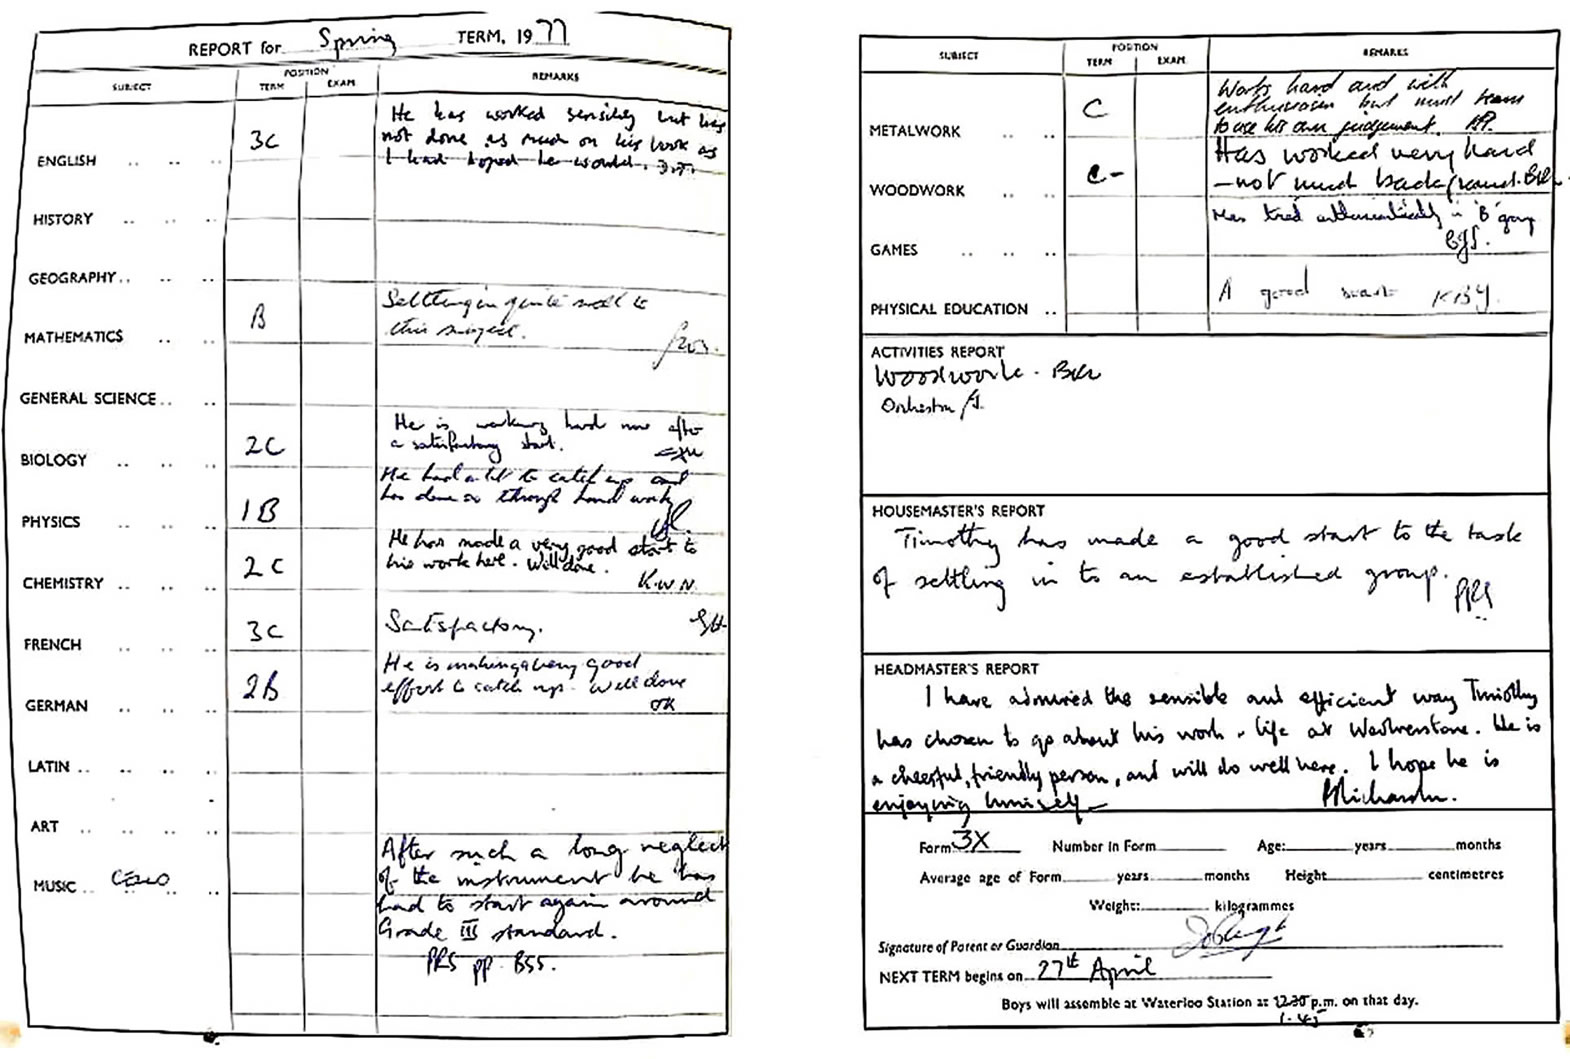 REPORT for Spring TERM, 1977
SUBJECT
POSITION
TERM
EXAM.
REMARKS
ENGLISH .. .. ..
3C
He has worked sensibly but has
not done as much on his book as
I had hoped he would.
HISTORY .. ..
GEOGRAPHY .. ..
MATHEMATICS .. ..
B
Settling in quite well to
this subject.
GENERAL SCIENCE .. ..
BIOLOGY .. .. ..
2C
He is working hard now after
a satisfactory start.
PHYSICS .. .. ..
1B
He had a lot to catch up and
has done so through hard work
CHEMISTRY .. ..
2C
He has made a very good start to
his work here. Well done.
K.W.N.
FRENCH .. .. ..
3C
Satisfactory.
GERMAN .. .. ..
2B
He is making a very good
effort to catch up. Well done
LATIN .. .. .. ..
ART .. .. .. ..
MUSIC .. Cello ..
After such a long neglect
of the instrument he has
had to start again around
Grade III standard.
PRS pp. BSS.
SUBJECT
POSITION
TERM
EXAM.
REMARKS
METALWORK .. ..
C
Works hard and with
enthusiasm but must learn
to use his own judgement.
WOODWORK .. ..
C-
Has worked very hard
- not much background.
GAMES .. .. ..
Has tried enthusiastically in 'B' group
PHYSICAL EDUCATION ..
A good start
ACTIVITIES REPORT
Woodwork.
Orchestra
HOUSEMASTER'S REPORT
Timothy has made a good start to the task
of settling in to an established group.
PRS
HEADMASTER'S REPORT
I have admired the sensible and efficient way Timothy
has chosen to go about his work & life at . He is
a cheerful, friendly person, and will do well here. I hope he is
enjoying himself
Form 3X Number in Form Age: years months
Average age of Form years months Height centimetres
Weight: kilogrammes
Signature of Parent or Guardian
NEXT TERM begins on 27th April
Boys will assemble at Waterloo Station at 12.30 p.m. on that day.
1.45